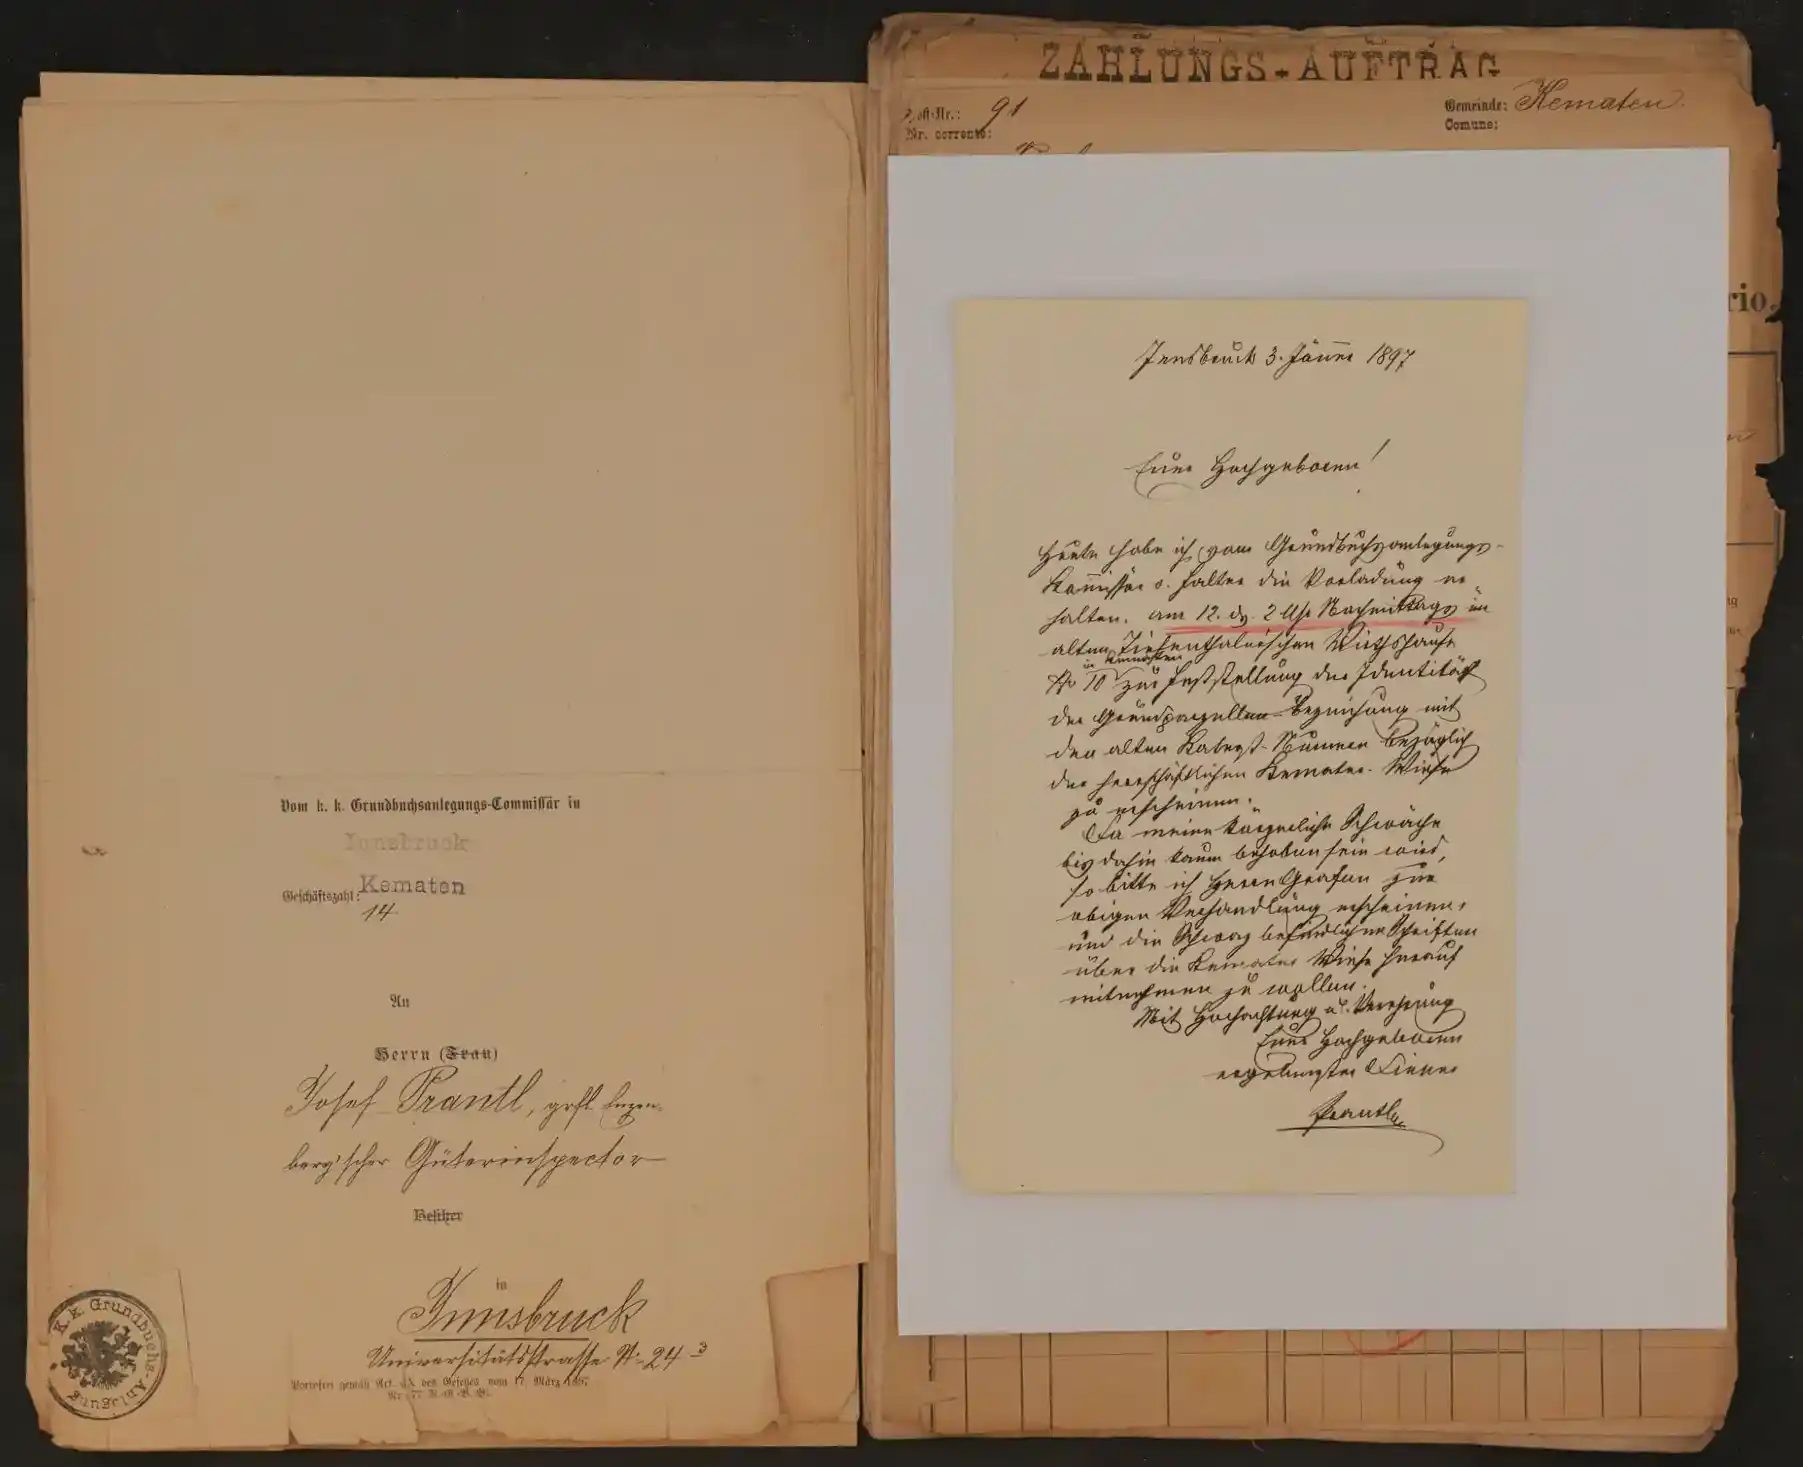 Vom k. k. Grundbuchsanlegungs-Commissär in
Innsbruck
Geschäftszahl: Kematen
14
An
Herrn (Frau)
Josef Prantl, gräfl. Enzen-
berg'scher Güterinspector
Besitzer
in
Innsbruck
Universitätsstrasse Nr. 24 3
Portofrei gemäß Art. IX des Gesetzes vom 17. März 1897
Nr. 77 R.-G.-B.
K. k. Grundbuchs-Anle
ZAHLUNGS-AUFTRAG
Post-Nr.: 91
Nr. corrente:
Gemeinde: Kematen
Comune:
rio.
Innsbruck 3. Jänner 1897
Euer Hochgeboren!
Heute habe ich vom Grundbuchsanlegungs-
Kommissär v. Falser die Vorladung er-
halten. am 12. ds. 2 Uhr Nachmittags im
alten Tiefenthalerischen Wirthshause
in Kematen
No 10 zur Feststellung der Identität
der Grundparzellen-Bezeichnung mit
den alten Katast.-Nummern bezüglich
der herrschaftlichen Kemater-Wiese
zu erscheinen.
Da meine körperliche Schwäche
bis dahin kaum behoben sein wird,
so bitte ich Herrn Grafen zur
obigen Verhandlung erscheinen,
und die Schwaz befindlichen Schriften
über die Kemater Wiese herauf
mitnehmen zu wollen.
Mit Hochachtung u. Verehrung
Euer Hochgeboren
ergebenster Diener
Prantl